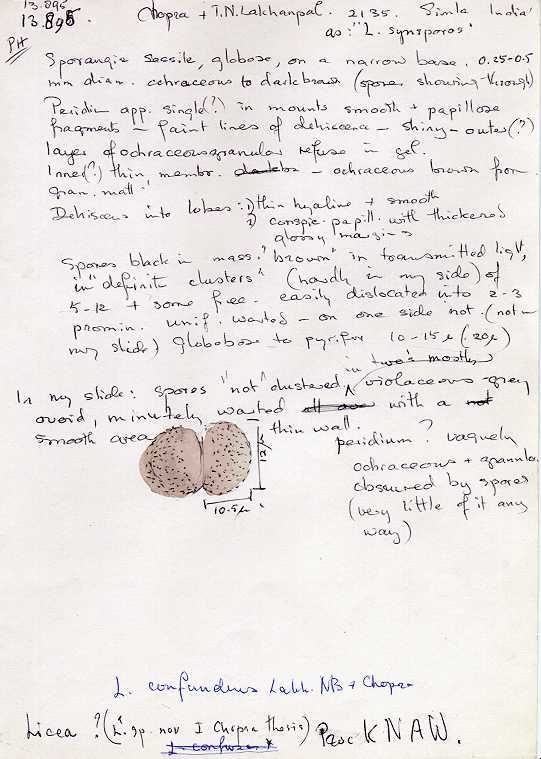 13.895
13.895 Chopra + T.N. Lakhanpal. 2135. Simla India
PH as: "L. synsporos"
Sporangia sessile, globose, on a narrow base. 0.25-0.5
mm diam. ochraceous to dark brown (spores showing through)
Peridium app. single(?) in mounts smooth + papillose
fragments - faint lines of dehiscence - shiny - outer(?)
layer of ochraceous granular refuse in gel.
Inner(?) thin membr. - ochraceous brown from
gran. matt.
Dehiscens into lobes: 1) thin hyaline + smooth
2) conspic. papill. with thickened
glossy margins
Spores black in mass. "brown" in transmitted light,
in "definite clusters" (hardly in my slide) of
5-12 + some free. easily dislocated into 2-3
promin. unif. warted - on one side not. (not in
my slide) globose to pyrifor 10-15µ (.20µ)
in two's mostly
In my slide: spores "not" clustered violaceous grey
ovoid, minutely warted with a
smooth area thin wall.
peridium? vaguely
ochraceous + granular
obscured by spores
(very little of it any
way)
10.5µ
L. confundens Lakh. NB + Chopra
Licea ? (L. sp. nov I Chopra thesis) Proc KNAW.